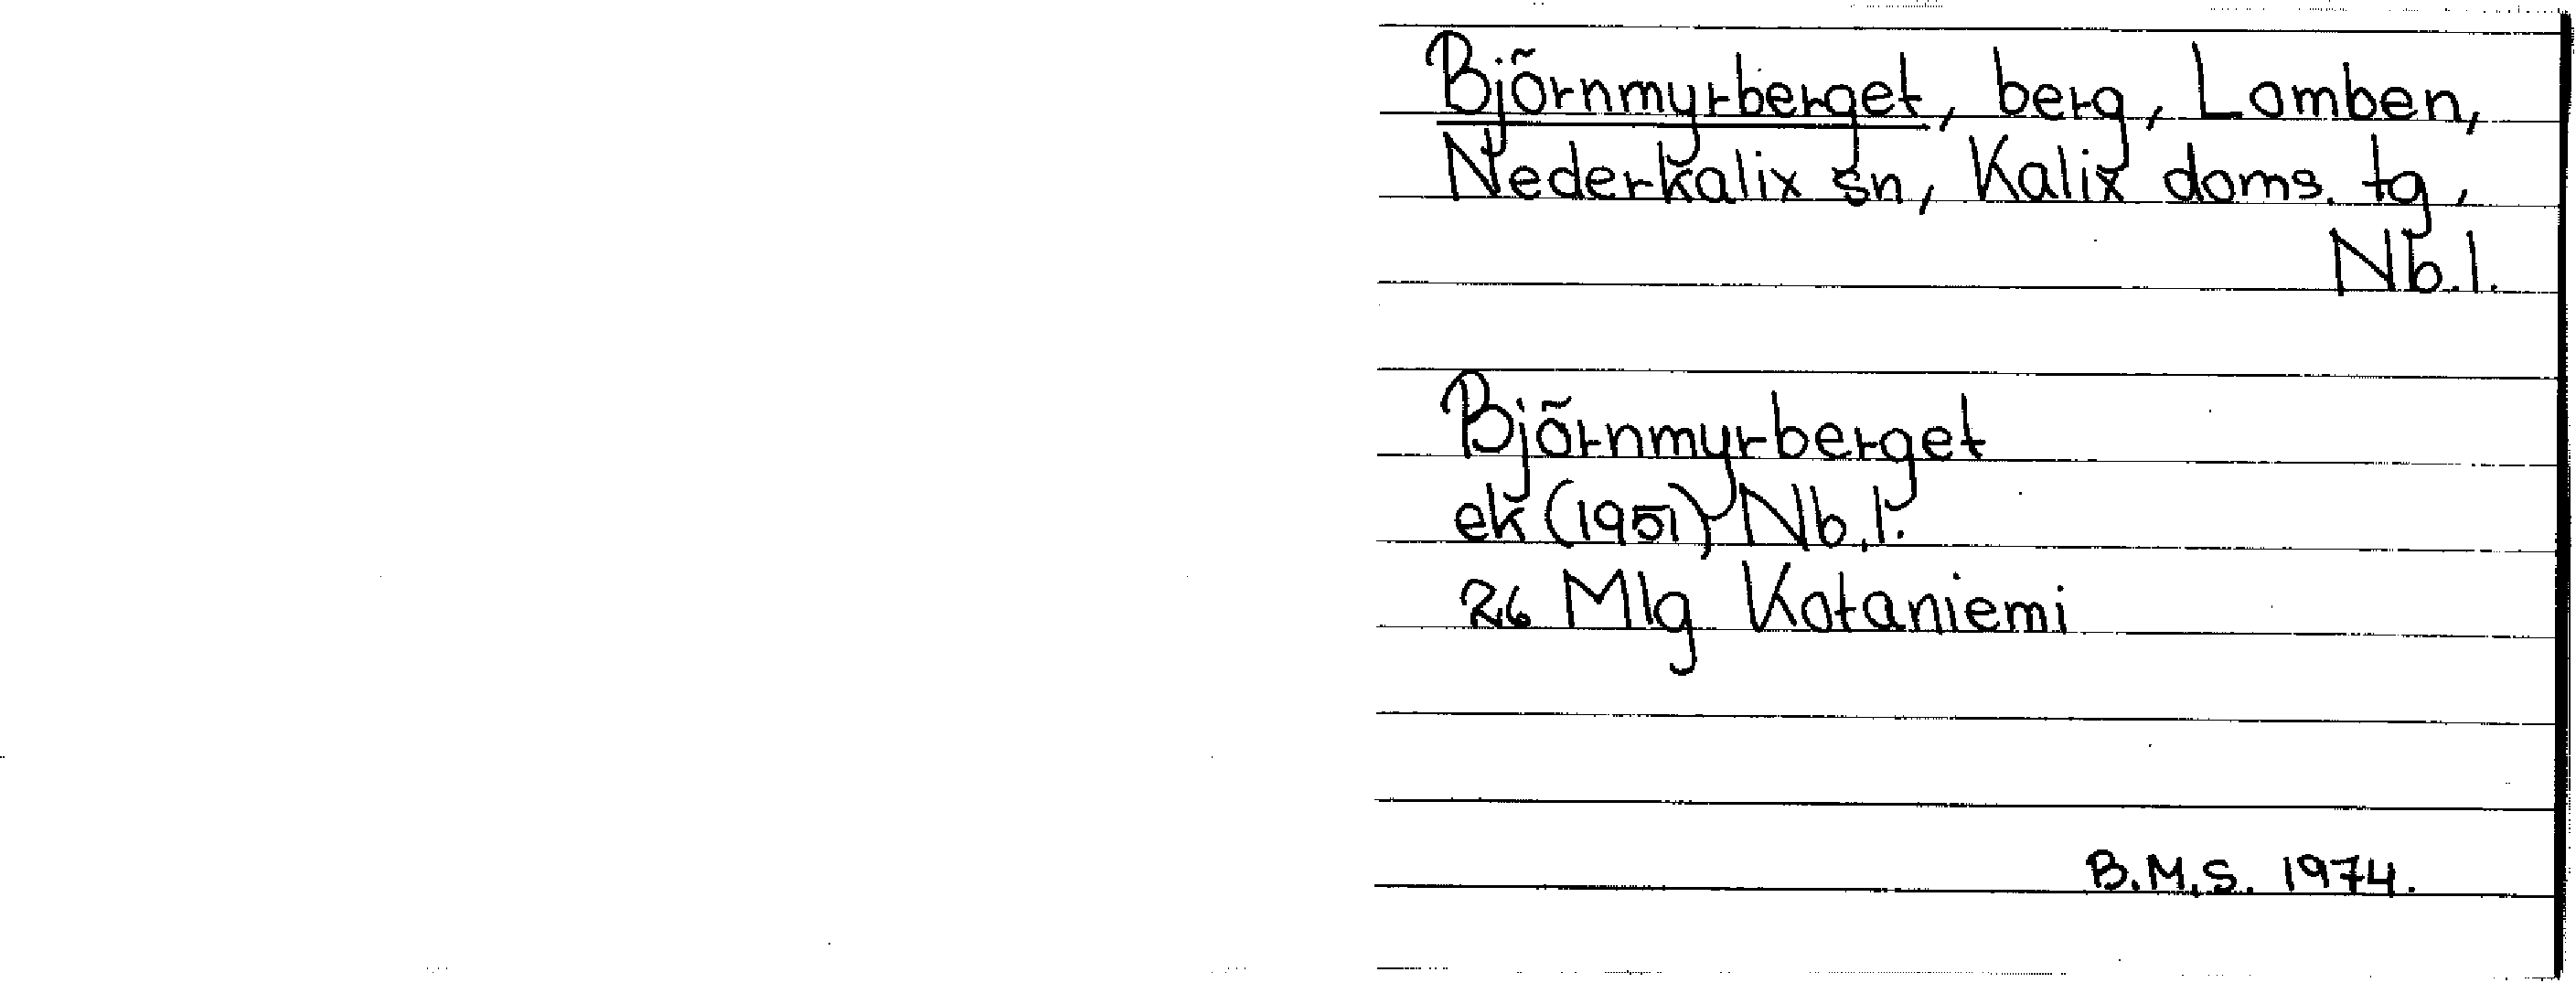 Björnmyrberget, berg, Lomben,
Nederkalix sn, Kalix doms. tg,
Nb.l.
Björnmyrberget
ek (1951) Nb.l.
26 Mlg Kotaniemi
B.M.S. 1974.